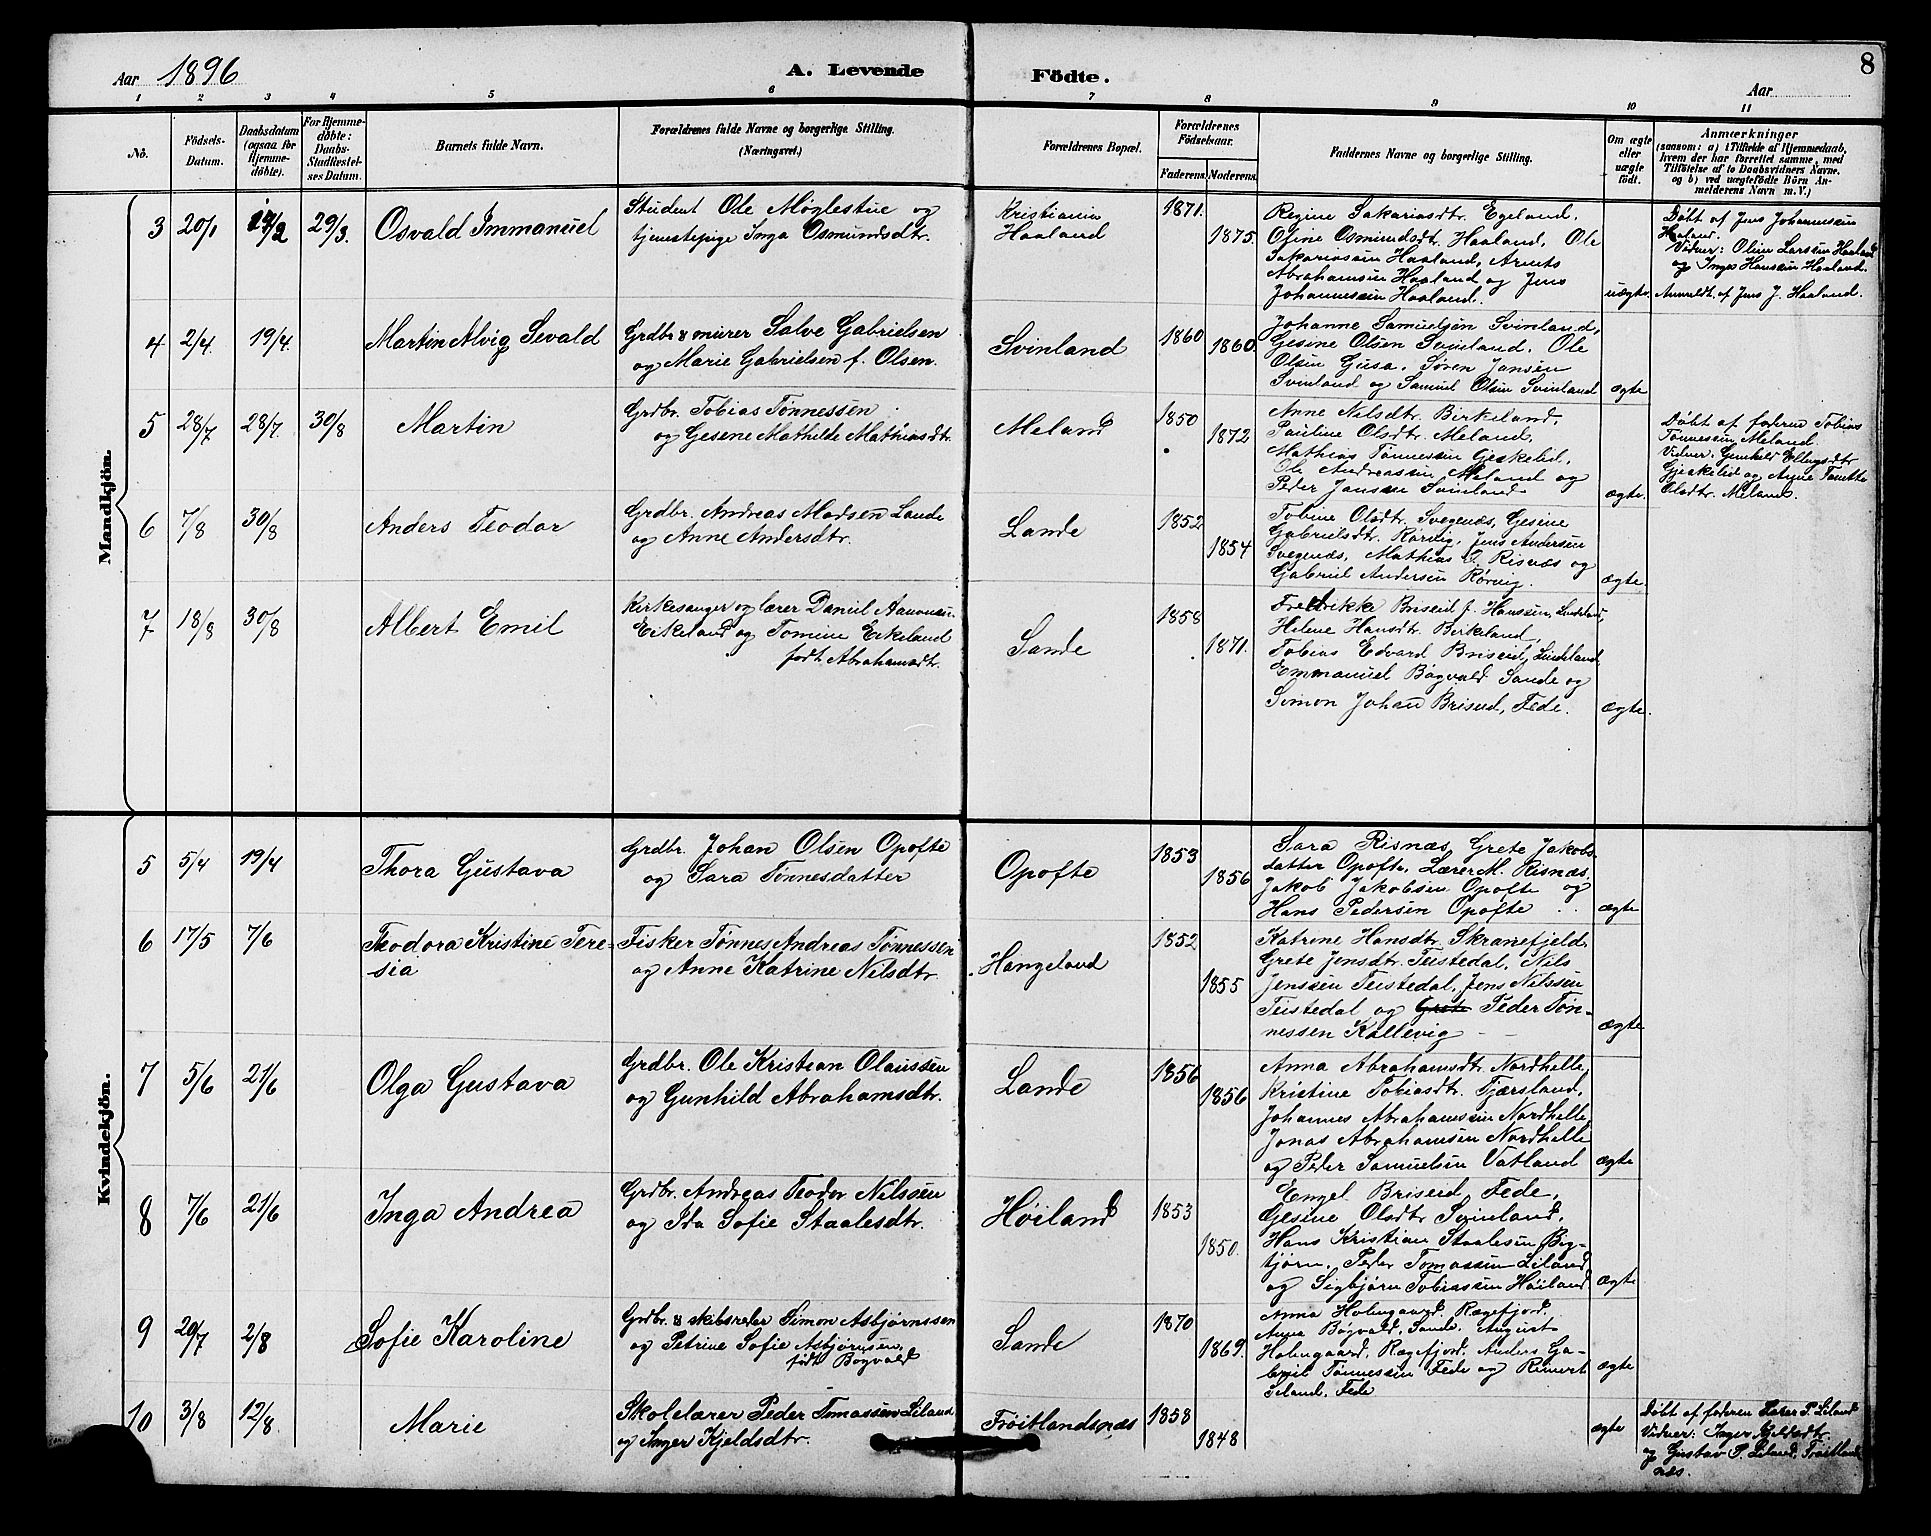 Aar 1896
A. Levende
Födte.
Aar
8
1 2 3 4 5 6 7 8 9 10 11
No.
Födsels-
Datum.
Daabsdatum
(ogsaa for
Hjemme-
döbte).
For Hjemme-
döbte:
Daabs-
Stadfæstel-
ses Datum.
Barnets fulde Navn.
Forældrenes fulde Navne og borgerlige Stilling.
(Næringsvei.)
Forældrenes Bopæl.
Forældrenes
Födselsaar.
Faderens. Moderens.
Faddernes Navne og borgerlige Stilling.
Om ægte
eller
uægte
födt.
Anmærkninger
(saasom: a) i Tilfælde af Hjemmedaab,
hvem der har forrettet samme, med
Tilföielse af to Daabsvidners Navne.
og b) ved uægtefödte Börn An-
melderens Navn m. V.)
Mandkjön.
3 20/1 /2 29/3. Osvald Immanuel
Student Ole Møglestue og
tjenestepige Inga Osmundsdtr.
Kristiania
Haaland
1871.
1875.
Regine Sakariasdtr. Egeland,
Ofine Osmundsdtr. Haaland, Ole
Sakariassen Haaland, Arnts
Abrahamsen Haaland og Jens
Johannessen Haaland.
uægte.
Døbt af Jens Johannessen
Haaland.
Vidner: Oline Larssen Haaland
og Inger Hanssen Haaland.
Anmeldt af Jens J. Haaland.
4 2/4. 19/4. Martin Alvig Sevald
Grdbr & murer Salve Gabrielsen
og Marie Gabrielsen f. Olsen.
Svinland
1860
1860.
Johanne Samuelsen Svinland,
Gesine Olsen Svinland, Ole
Olsen Gusa, Søren Jansen
Svinland og Samuel Olsen Svinland
ægte
5 28/7 28/7. 30/8 Martin
Grdbr. Tobias Tønnessen
og Gesene Mathilde Mathiasdtr.
Meland
1850
1872
Anne Nilsdtr. Birkeland,
Pauline Olsdtr. Meland,
Mathias Tønnessen Geskelid,
Ole Andreassen Meland og
Peder Jansen Svinland.
ægte.
Døbt af faderen Tobias
Tønnessen Meland.
Vidner: Gunhild Ellingsdtr
Gjeskelid og Anne Tonette
Olsdtr. Meland.
6 7/8 30/8 Anders Teodor
Grdbr. Andreas Madsen Lande
og Anne Andersdtr.
Lande
1852
1854
Tobine Olsdtr. Svegenæs, Gesine
Gabrielsdtr. Rørvig, Jens Andersen
Svegenæs, Mathias O. Risnæs og
Gabriel Andersen Rørvig.
ægte.
7 18/8 30/8 Albert Emil
Kirkesanger og lærer Daniel Aanensen
Eikeland og Tomine Eikeland
født Abrahamsdtr.
Sande
1858
1871.
Fredrikke Briseid f. Hanssen, Lindeland,
Helene Hansdtr. Birkeland,
Tobias Edvard Briseid, Lindeland
Emmanuel Bøgvald Sande og
Simon Johan Briseid, Fede.
ægte.
Kvindekjön.
5 5/4 19/4 Thora Gustava
Grdbr. Johan Olsen Opofte
og Sara Tønnesdatter
Opofte
1853
1856
Sara Risnæs, Grete Jakobs-
datter Opofte, Lærer M. Risnæs,
Jakob Jakobsen Opofte og
Hans Pedersen Opofte
ægte
6 17/5 7/6 Teodora Kristine Tere-
sia
Fisker Tønnes Andreas Tønnessen
og Anne Katrine Nilsdtr.
Hangeland
1852
1855
Katrine Hansdtr. Skranefjeld
Grete Jensdtr. Teistedal, Nils
Jenssen Teistedal, Jens Nilssen
Teistedal og Grete Peder Tøn-
nessen Kallevig
ægte
7 5/6 21/6 Olga Gustava
Grdbr. Ole Kristian Olaussen
og Gunhild Abrahamsdtr.
Lande
1856
1856
Anna Abrahamsdtr. Nordhelle,
Kristine Tobiasdtr. Tjærsland,
Johannes Abrahamssen Nordhelle,
Jonas Abrahamsen Nordhelle
og Peder Samuelsen Vatland
ægte
8 7/6 21/6 Inga Andrea
Grdbr. Andreas Teodor Nilssen
og Ida Sofie Staalesdtr.
Høiland
1853
1850.
Engel Briseid Fede,
Gesine Olsdtr Svinland,
Hans Kristian Staalesen Big-
tjørn, Peder Tomassen Leland
og Sigbjørn Tobiassen Høiland
ægte
9 20/7 2/8 Sofie Karoline
Grdbr. & skibsreder Simon Asbjørnssen
og Petrine Sofie Asbjørnsen,
født Bøgvald
Sande
1870
1869.
Anna Holmgaard, Rægefjord.
Anna Bøgvald, Sande. August
Holmgaard, Rægefjord, Anders Ga-
briel Tønnessen Fede og Reinert
Leland. Fede
ægte
10 3/8 12/8 Marie
Skolelærer Peder Tomassen Leland
og Inger Kjeldsdtr.
Frøitlandsnæs
1858
1848
ægte
Døbt af faderen Lærer P. Leland
Vidner: Inger Kjeldsdtr.
og Gustav P. Leland, Frøitlands
næs.